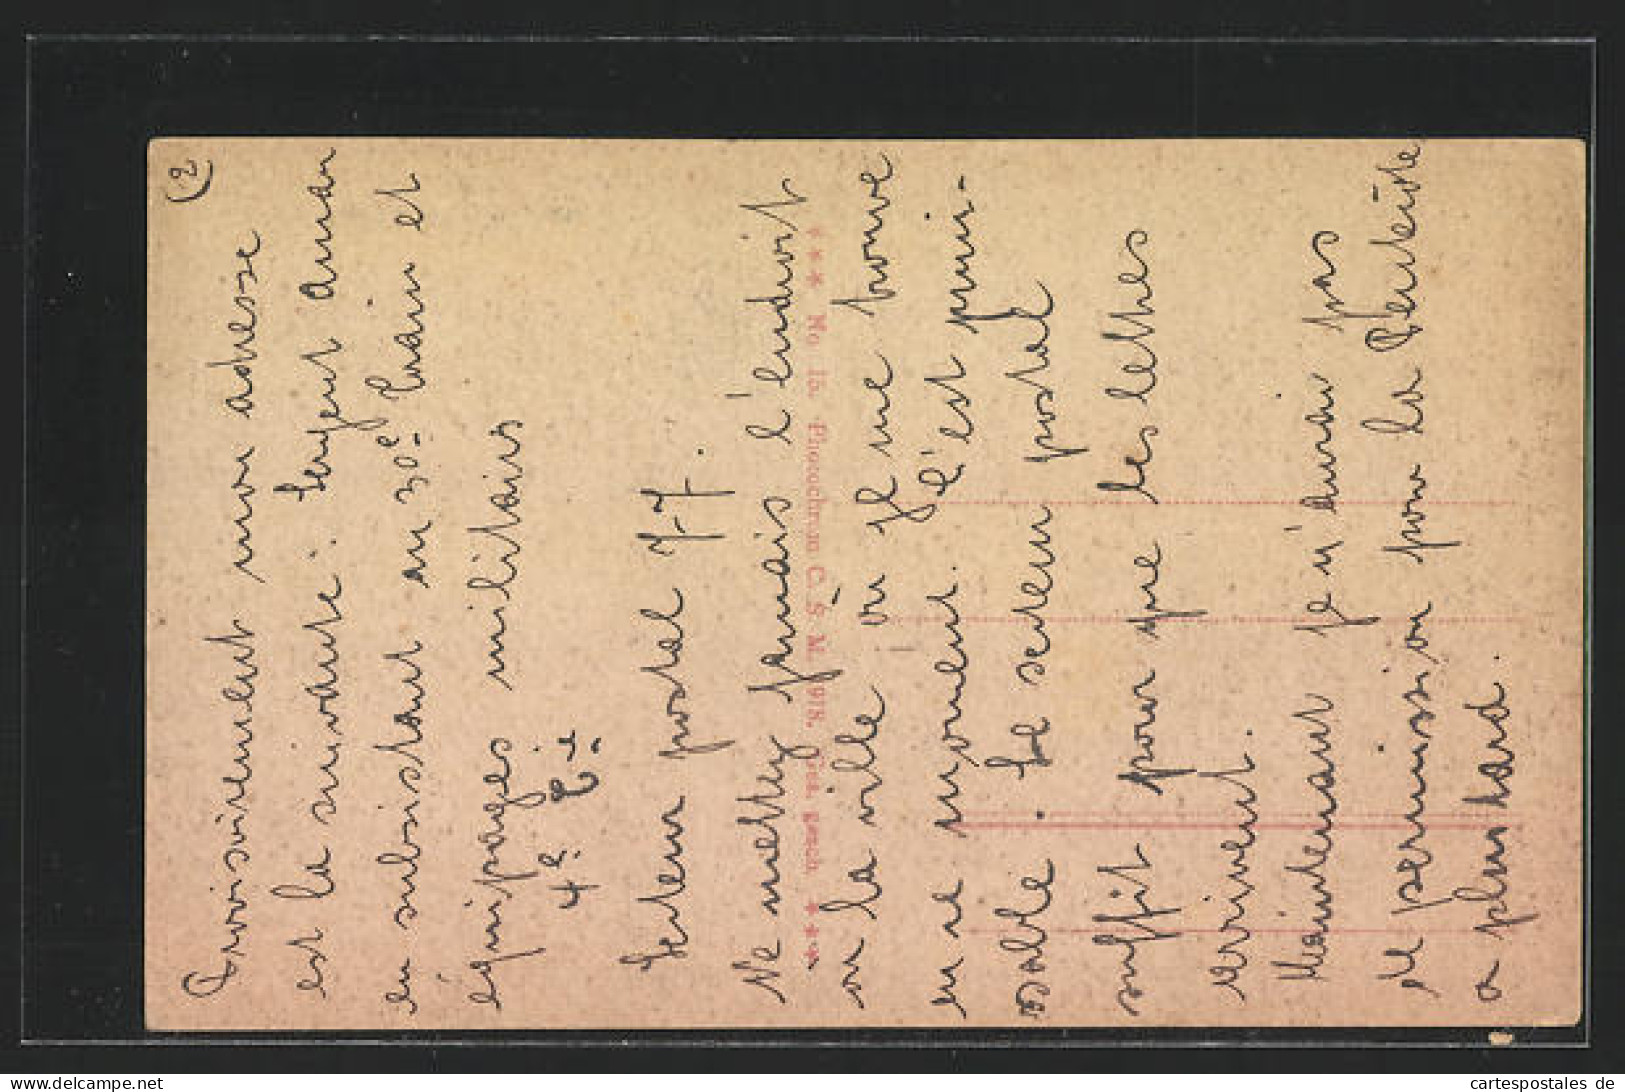 (2)
Provisoirement mon adresse
est la suivante : Sergent
en subsistant au 30e train et
équipages militaires
4e Cie
Secteur postal 77.
Ne mettez jamais l'endroit
ou la ville où je me trouve
en ce moment. C'est puni-
ssable. Le secteur postal
suffit pour que les lettres
arrivent.
Maintenant je n'aurai pas
de permission pour la Pentecôte
a plus tard.
*** No. 15. Photochrom C. S. M. 1918. Ges. gesch. ***
cartespostales de